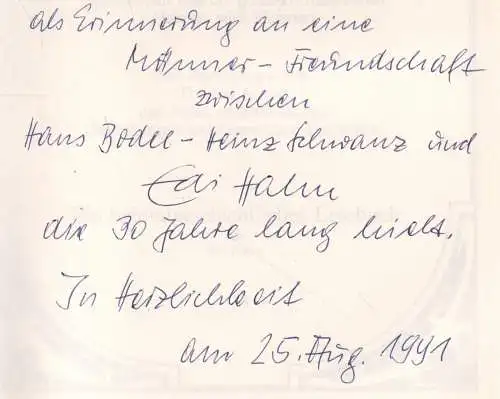 als Erinnerung an eine
Männer - Freundschaft
zwischen
Hans Bodee - Heinz Schwanz und
Edi Halm
die 30 Jahre lang hielt.
In Herzlichkeit
am 25. Aug. 1991